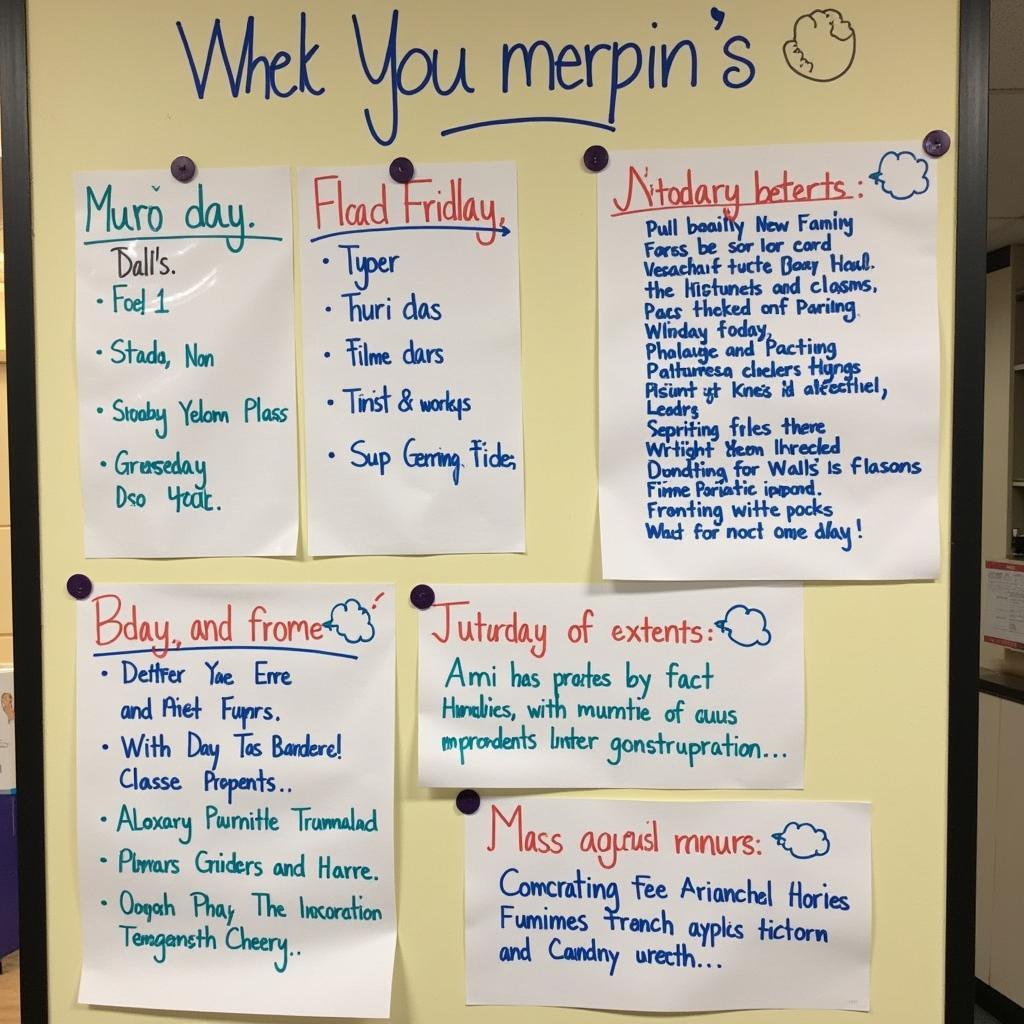 Whek You merpin's
Muro day.
Dall's.
• Foel 1
• Stado, Non
• Stooby Yelom Plass
• Gruseday
Dso Yoat.
Flcad Fridlay,
• Typer
• Thuri das
• Filme dars
• Tinst & workys
• Sup Gerring. Tides
Nitodary beterts:
Pull boaiity New Faminy
Forss be sor lor card
Vesachaif tucte Boxy Haul.
the Histunets and closms,
Pacs thcked onf Pariing
Winday foday,
Phalauge and Pacting
Patturresa chelers Hyngs
Risint yt Knes id
Leadrs
Sepriting frles there
Wrtight Ihrecled
Dondting for Walls is flasons
Fime Poriatic ippond.
Frontirg witte pocks
Wact for noct ome day!
Bday, and frome
• Detter Yae Erre
and Aiet Fuprs.
• With Day Tas Bandere!
Classe Propents..
• ALoxary Purnitle Trumnalad
• Plwars Griders and Harre.
• Oogah Phay The Inxcoration
Temgansth Cheery..
Juturday of extents:
Ami has protes by fact
with mumtie of cuus
mprondents linter gonstrupration...
Mass mnurs:
Comcrating Fee Arianchel Hories
Fumimes French applcs tictorn
and Candny urecth...